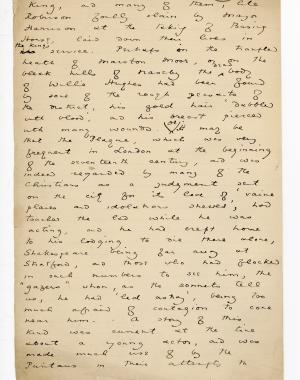 King, and many of them, like
Robinson foully slain by Major
Harrison at the taking of Basing
House, laid down their lives in
the King's service. Perhaps on the trampled
heath of Marston Moor, or on the
bleak hills of Naseby, the dead body
of Willie Hughes had been found
by some of the rough peasants of
the district, his gold hair "dabbled
with blood", and his breast pierced
with many wounds. Or it may be
that the Plague, which was very
frequent in London at the beginning
of the seventeenth century, and was
indeed regarded by many of the
Christians as a judgment sent
on the city for its love of "vaine
plaies and idolatrous shewes", had
touched the lad while he was
acting, and he had crept home
to his lodging, to die there alone,
Shakespeare being far away at
Stratford, and those who had flocked
in such numbers to see him, the
"gazers" whom, as the sonnets tell
us, he had "led astray", being too
much afraid of contagion to come
near him. A story of this
kind was current at the time
about a young actor, and was
made much use of by the
Puritans in their attempts to